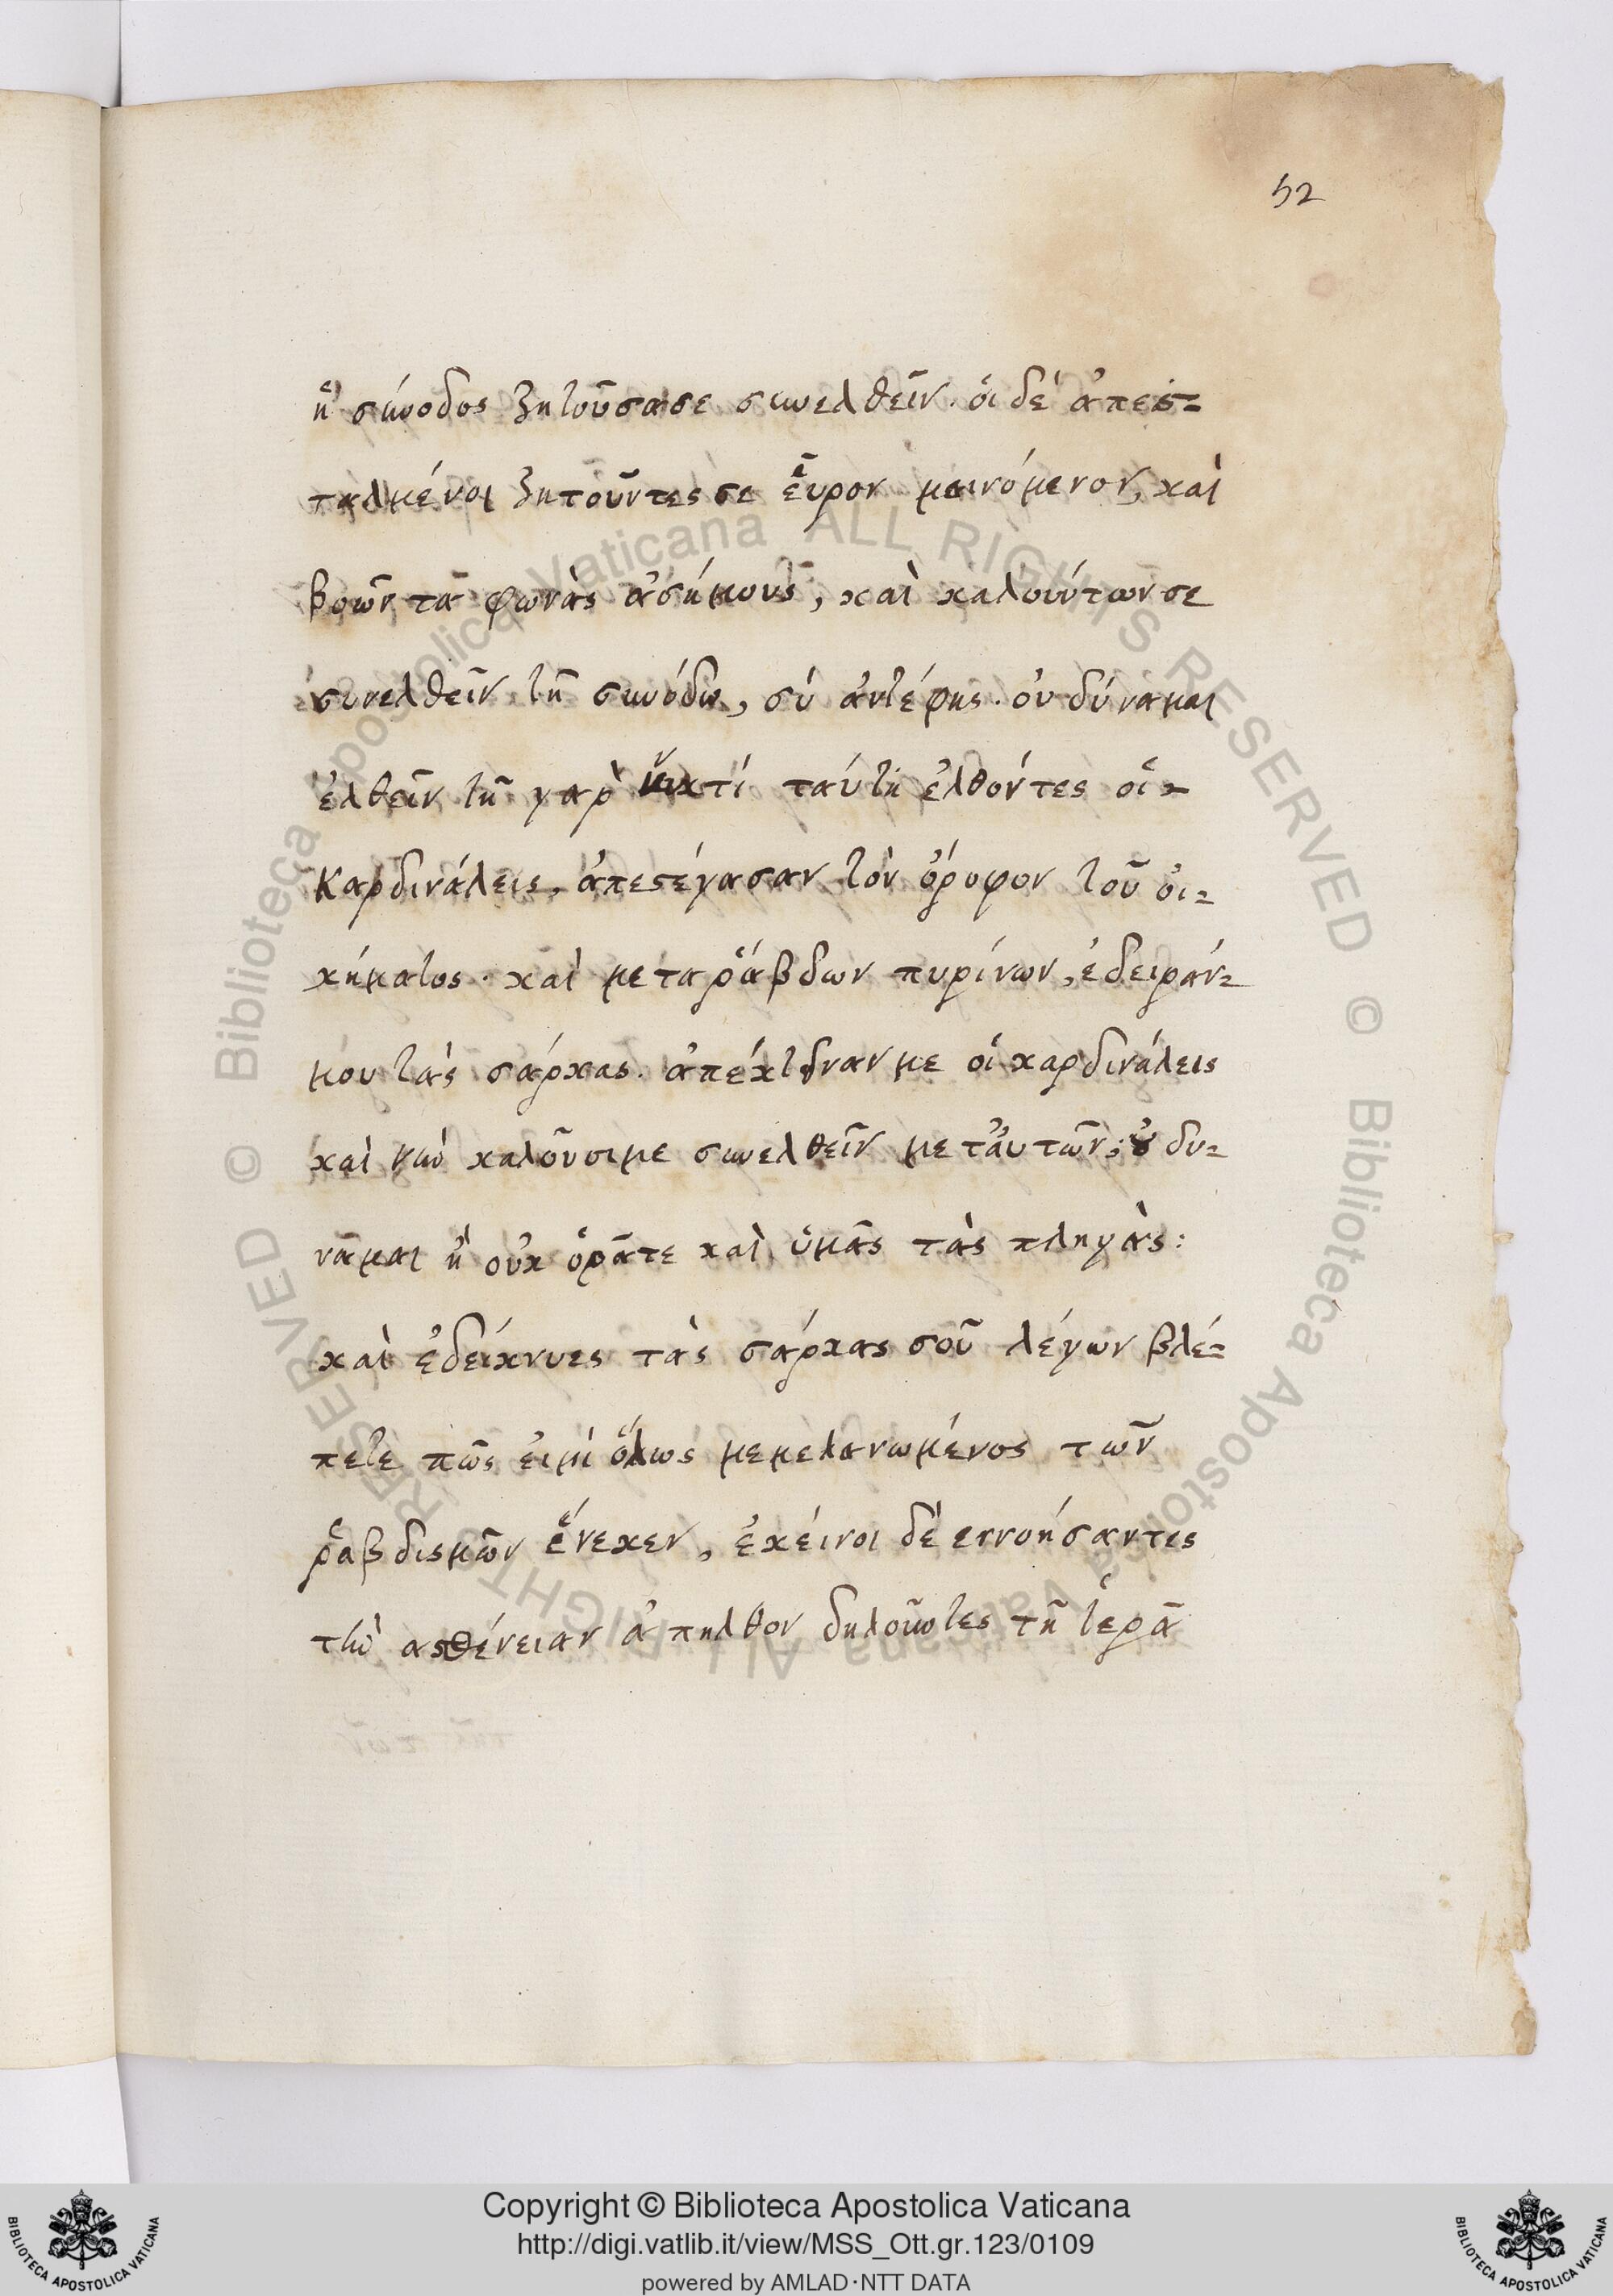 52
ἡ σύνοδος ζητοῦσασε συνελθεῖν. ὁι δέ ἀπες=
ταλμένοι ζητοῦντες σε εὗρον μαινόμενον, καὶ
βοῶντα φωνὰς ἀσήμους, καὶ καλούντων σε
συνελθεῖν τῆ συνόδω, σύ ἀντέφης. ὀυ δύναμαι
ἐλθεῖν τῆ γαρ νυκτί ταύτη ἐλθόντες οἱ=
Καρδινάλεις, ἀπεστέγασαν τὸν ὄροφον τοῦ ὀι=
κήματος. καὶ μετα ῥάβδων πυρίνων, ἐδειράν=
μου τὰς σάρκας. ἀπέκτειναν με οἱ καρδινάλεις
καὶ νῦν καλοῦσιμε συνελθεῖν μετ᾽ἀυτῶν; ὀυ δυ=
νᾶμαι ἢ οὐκ ὁρᾶτε καὶ ὑμᾶς τὰς πληγὰς:
καὶ ἐδείκνυες τὰς σάρκας σοῦ λέγων βλέ=
πετε πῶς ἐιμί ὅλως μεμελανωμένος τῶν
ῥαβδισμῶν ἕνεκεν, ἐκέινοι δέ εννοήσαντες
τὴν ασθένειαν ἀπηλθον δηλοῦντες τῆ ἱερᾶ
Copyright © Biblioteca Apostolica Vaticana
http://digi.vatlib.it/view/MSS_Ott.gr.123/0109
powered by AMLAD·NTT DATA
BIBLIOTECA APOSTOLICA VATICANA
BIBLIOTECA APOSTOLICA VATICANA
© Biblioteca Apostolica Vaticana ALL RIGHTS RESERVED
© Biblioteca Apostolica Vaticana ALL RIGHTS RESERVED